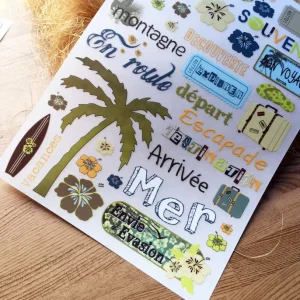 montagne
SOUVE
DECOUVERTE
En route
VOYA
départ
Escapade
DESTINATION
Vacances
Arrivée
Mer
Envie
d'Evasion